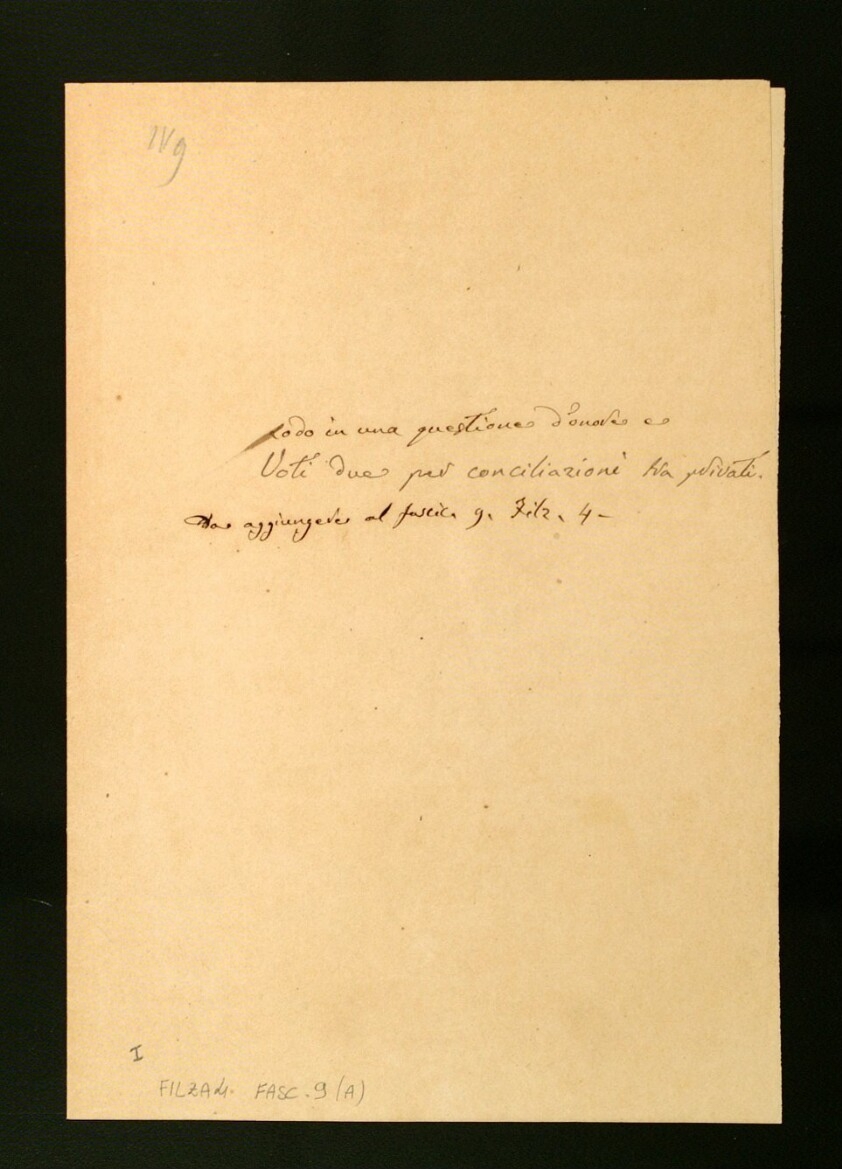 IV 9
Lodo in una questione d'onore e
Voti due per conciliazioni tra privati.
Da aggiungere al fascic. 9. Filz. 4 -
I
FILZA 4. FASC. 9 (A)